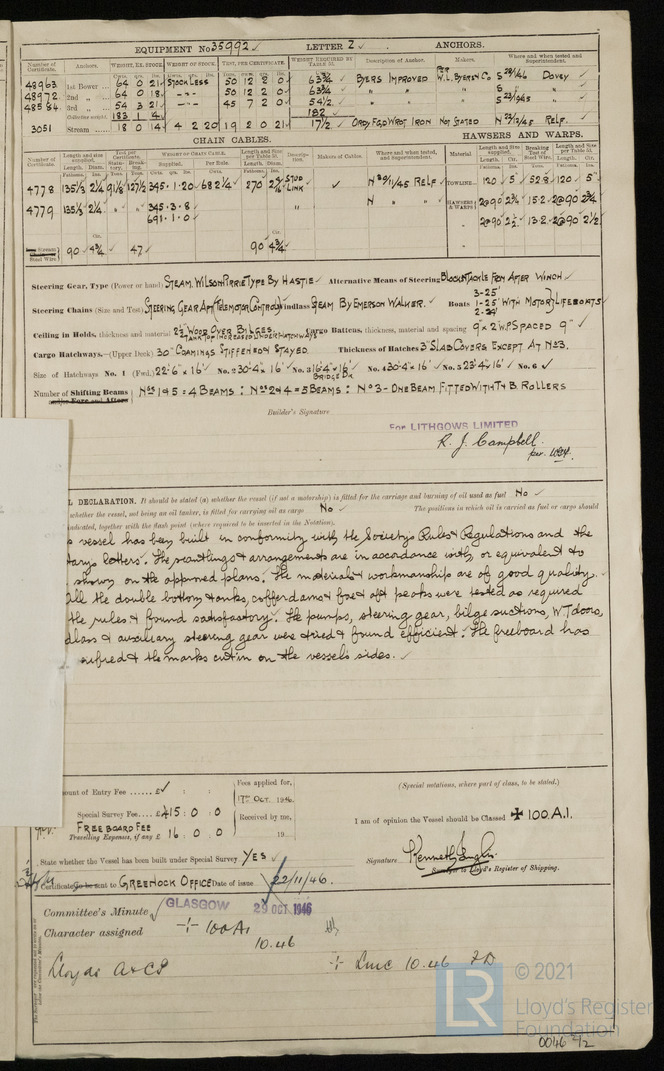 EQUIPMENT No 35992 ✓ LETTER Z ✓ ANCHORS.
Number of Certificate. Anchors. WEIGHT, EX. STOCK WEIGHT OF STOCK. TEST, PER CERTIFICATE. WEIGHT REQUIRED BY TABLE 31. Description of Anchor. Makers. Where and when tested and Superintendent.
48963 1st Bower 64 0 21 STOCKLESS 50 12 2 0 63¾ BYERS IMPROVED W.L. BYERS & Co S 28/1/46 DAVEY
48972 2nd „ 64 0 18 -"- 50 12 2 0 63¾ " " S "
48584 3rd „ 54 3 21 -"- 45 7 2 0 54½ " " S 23/1945 "
Collective weight. 183 1 4 182
3051 Stream 18 0 14 4 2 20 19 2 0 21 17½ ORDY FGD WROT IRON NOT STATED N 23/2/45 RELF.
CHAIN CABLES. HAWSERS AND WARPS.
Number of Certificate. Length and size supplied. Test per Certificate. WEIGHT OF CHAIN CABLE. Length and Size per Table 31. Description. Makers of Cables. Where and when tested, and Superintendent. Material Length and Size supplied. Breaking Test of Steel Wire. Length and Size per Table 31.
4778 135⅓ 2¼ 91⅛ 127½ 345.1.20 682¼ 270 2 5/16 STUD LINK ✓ N 30/11/45 RELF TOWLINE 120 5" 52.8 120 5"
4779 135⅓ 2¼ " " 345.3.8 " N " " HAWSERS & WARPS 2@90 2¾ 15.2 2@90 2¾
691.1.0 2@90 2½ 13.2 2@90 2½
Stream Steel Wire 90 4¾ 47 90 4¾
Steering Gear, Type (Power or hand) STEAM. WILSON PIRRIE TYPE BY HASTIE ✓ Alternative Means of Steering BLOCK & TACKLE FROM AFTER WINCH ✓
Steering Chains (Size and Test) STEERING GEAR AFT (TELEMOTOR CONTROL) Windlass STEAM BY EMERSON WALKER. ✓ Boats 3-25' 1-25' WITH MOTOR 2-24' } LIFEBOATS ✓
Ceiling in Holds, thickness and material 2½" WOOD OVER BILGES. TANK TOP INCREASED UNDER HATCHWAYS Cargo Battens, thickness, material and spacing 9" x 2" W.P. SPACED 9" ✓
Cargo Hatchways.—(Upper Deck) 30" COAMINGS STIFFENED & STAYED. Thickness of Hatches 3" SLAB COVERS EXCEPT AT No3.
Size of Hatchways No. 1 (Fwd.) 22'-6" x 16' ✓ No. 2 30'-4" x 16' ✓ No. 3 16'-4" x 16' BRIDGE DK No. 4 30'-4" x 16' ✓ No. 5 23'-4" x 16' ✓ No. 6 ✓
Number of Shifting Beams and/or Fore and Afters NOS 1 & 5 = 4 BEAMS : NOS 2 & 4 = 5 BEAMS : No 3 - ONE BEAM FITTED WITH TN B. ROLLERS
Builder's Signature
For LITHGOWS LIMITED
R. J. Campbell.
L DECLARATION. It should be stated (a) whether the vessel (if not a motorship) is fitted for the carriage and burning of oil used as fuel No ✓
whether the vessel, not being an oil tanker, is fitted for carrying oil as cargo No ✓ The positions in which oil is carried as fuel or cargo should
indicated, together with the flash point (where required to be inserted in the Notation).
vessel has been built in conformity with the Society's Rules & Regulations and the
tary's letters. The scantlings & arrangements are in accordance with, or equivalent to
shown on the approved plans. The materials & workmanship are of good quality.
All the double bottom tanks, cofferdams & fore & aft peaks were tested as required
the rules & found satisfactory. The pumps, steering gear, bilge suctions, W.T. doors,
dlass & auxiliary steering gear were tried & found efficient. The freeboard has
verified & the marks cut in on the vessel's sides. ✓
ount of Entry Fee ...... £ ✓ : :
Special Survey Fee... £ 415 : 0 : 0
FREEBOARD FEE
Travelling Expenses, if any £ 16 : 0 : 0
Fees applied for,
17TH OCT. 1946.
Received by me,
19
(Special notations, where part of class, to be stated.)
I am of opinion the Vessel should be Classed ✠ 100.A.1.
State whether the Vessel has been built under Special Survey YES ✓
Signature Kenneth
Surveyor to Lloyd's Register of Shipping.
Certificate to be sent to GREENOCK OFFICE Date of issue 22/11/46.
Committee's Minute GLASGOW 29 OCT 1946
Character assigned + 100A1
10.46
Lloyds A & CP
+ LMC 10.46 FD
LR © 2021
Lloyd's Register
Foundation
0046 2/2